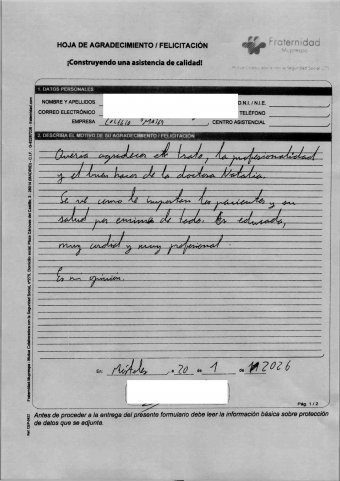 HOJA DE AGRADECIMIENTO / FELICITACIÓN
Fraternidad
Muprespa
¡Construyendo una asistencia de calidad!
1. DATOS PERSONALES
NOMBRE Y APELLIDOS
D.N.I. / N.I.E.
CORREO ELECTRÓNICO
TELÉFONO
EMPRESA
CENTRO ASISTENCIAL
2. DESCRIBA EL MOTIVO DE SU AGRADECIMIENTO / FELICITACIÓN
Quería agradecer el trato, la profesionalidad
y el buen hacer de la doctora Natalia.
Se ve como le importan los pacientes y su
salud por encima de todo. Es educada,
muy cordial y muy profesional.
Es mi opinión.
En Móstoles, a 20 de 1 de 2026
Pág. 1 / 2
Antes de proceder a la entrega del presente formulario debe leer la información básica sobre protección
de datos que se adjunta.